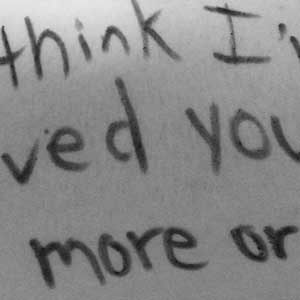 think I'
ved you
more or